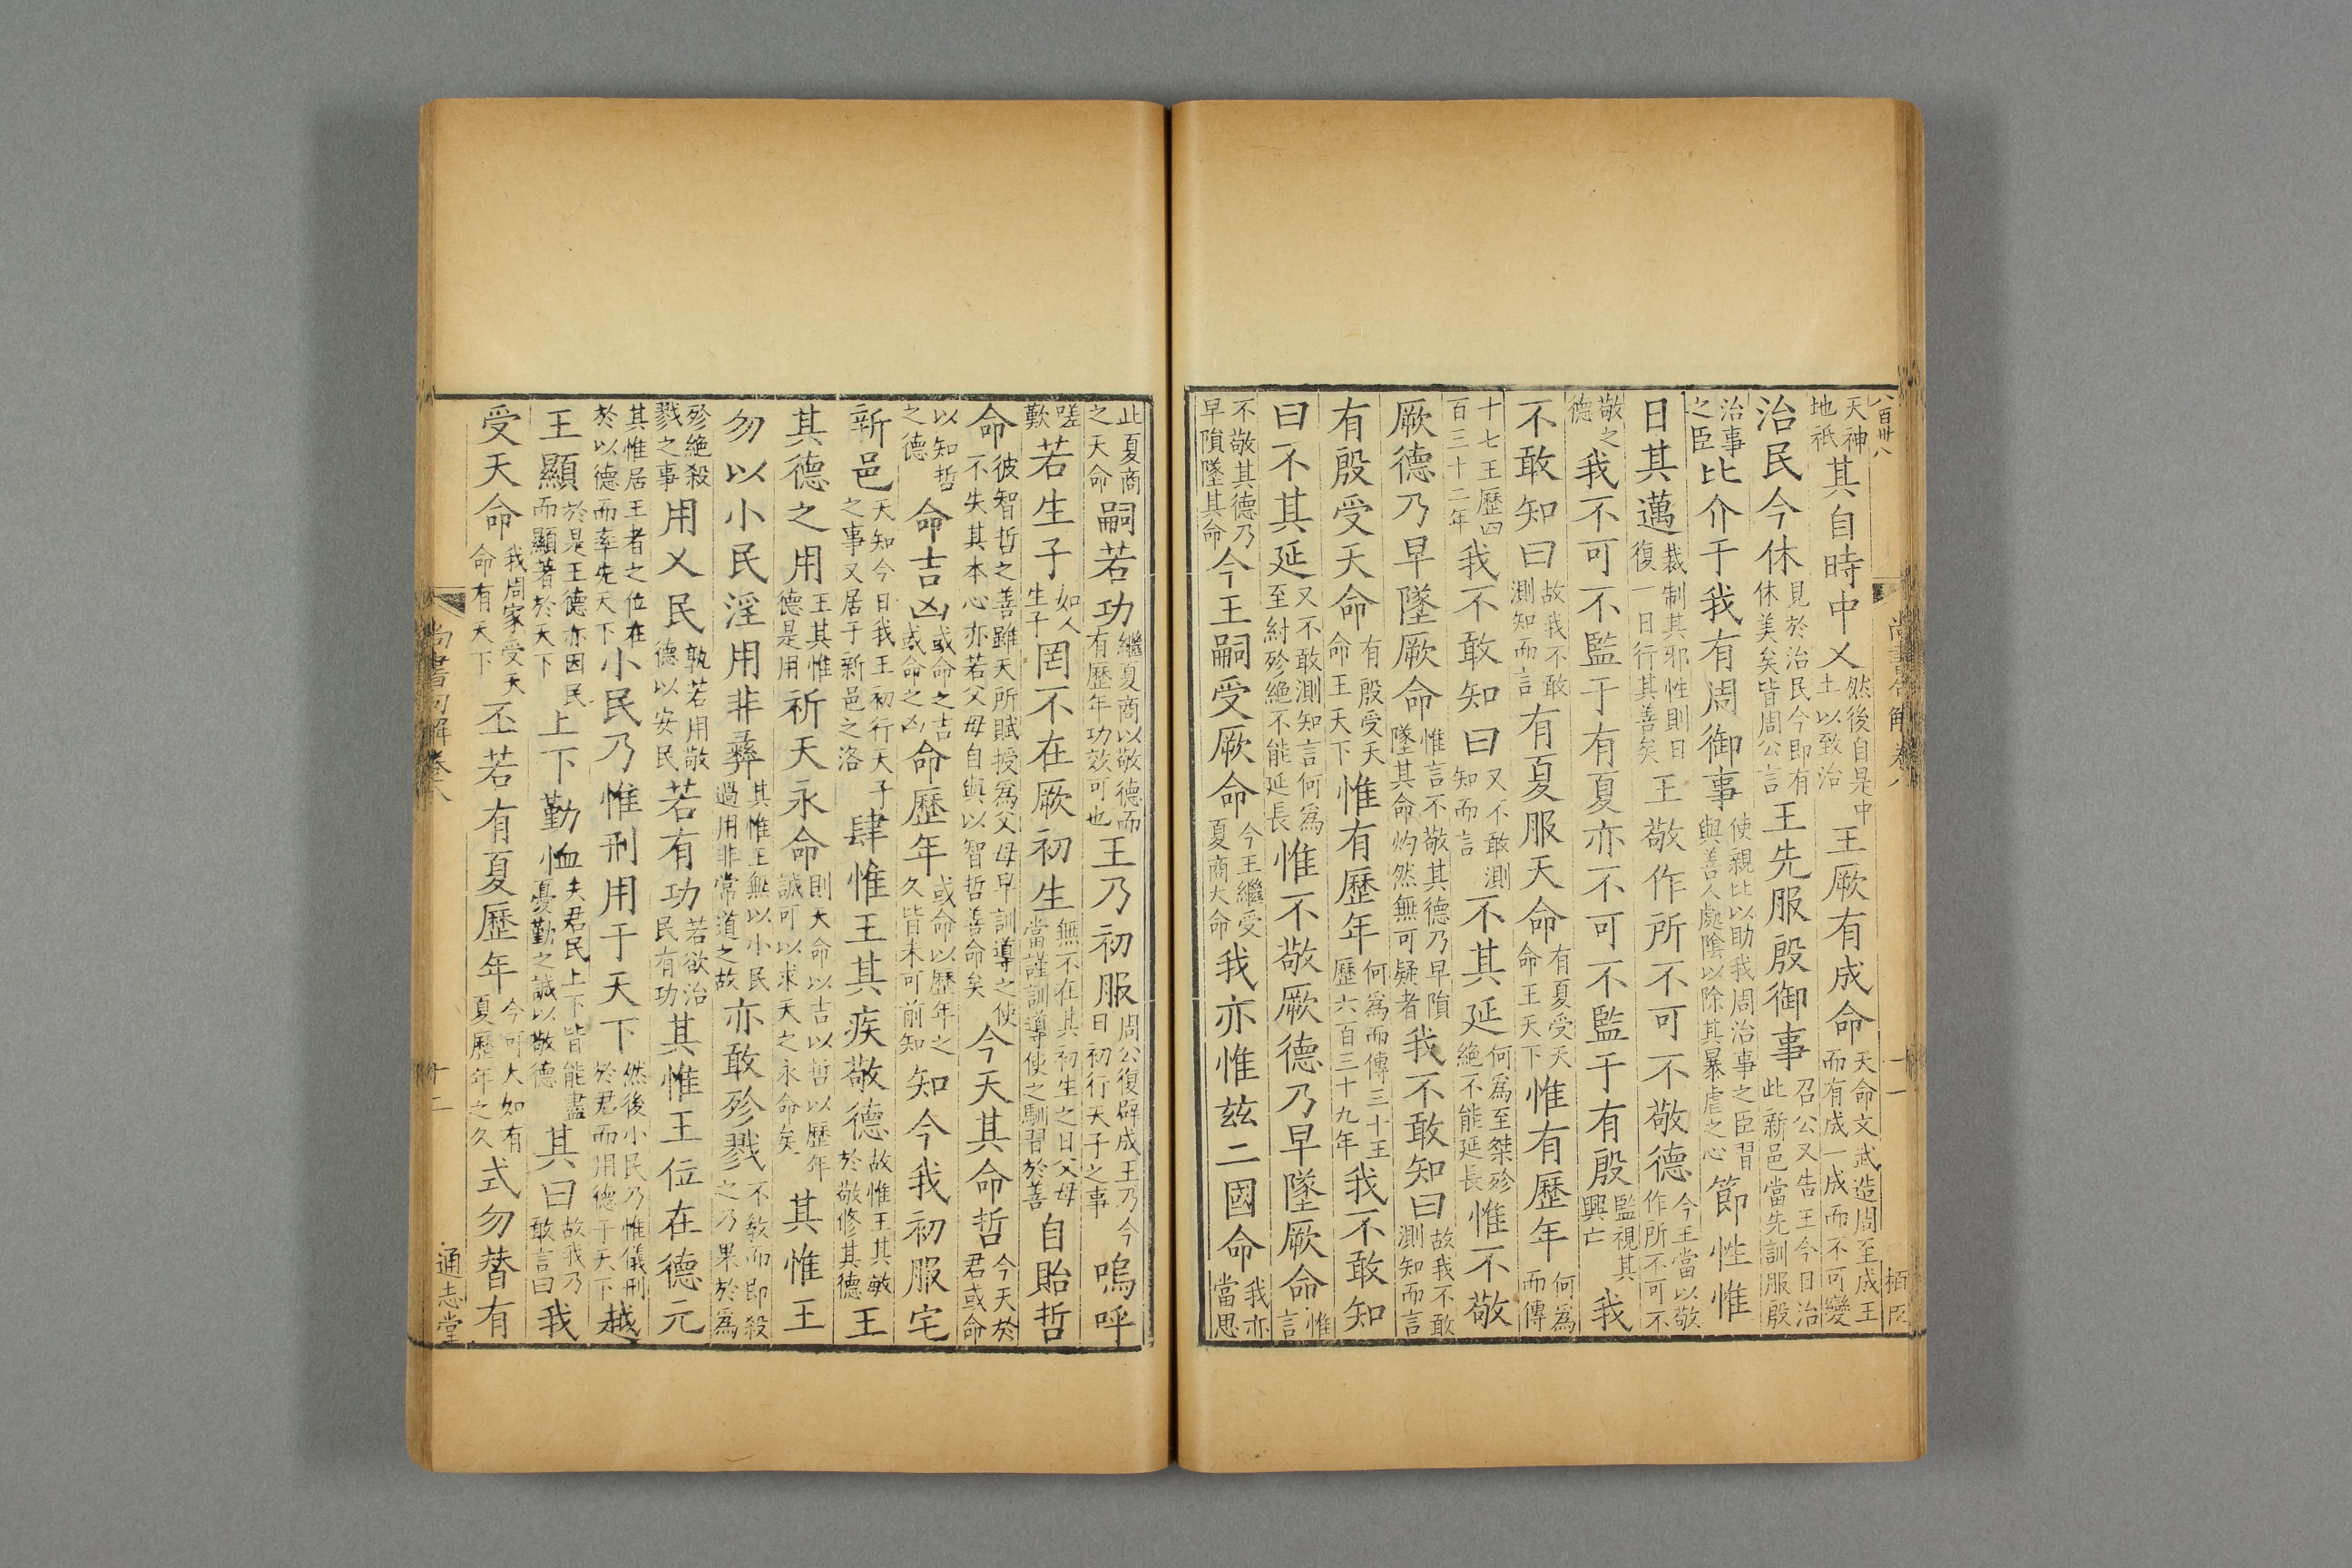 八百卅八
尚書句解卷八
十一
天神地祇其自時中乂然後自是中土以致治王厥有成命天命文武造周至成王而有成一成而不可變
治民今休見於治民今即有休美矣皆周公言王先服殷御事召公又告王今日治此新邑當先訓服殷
治事之臣比介于我有周御事使親比以助我周治事之臣習與善人處陰以除其暴虐之心節性惟
日其邁裁制其邪性則日復一日行其善矣王敬作所不可不敬德今王當以敬作所不可不
敬之德我不可不監于有夏亦不可不監于有殷監視其興亡我
不敢知曰故我不敢測知而言有夏服天命有夏受天命王天下惟有歷年何為而傳
十七王歷四百三十二年我不敢知曰又不敢測知而言不其延何為至桀殄絶不能延長惟不敬
厥德乃早墜厥命惟言不敬其德乃早隕墜其命灼然無可疑者我不敢知曰故我不敢測知而言
有殷受天命有殷受天命王天下惟有歷年何為而傳三十王歷六百三十九年我不敢知
曰不其延又不敢測知言何為至紂殄絶不能延長惟不敬厥德乃早墜厥命惟言
不敬其德乃早隕墜其命今王嗣受厥命今王繼受夏商大命我亦惟兹二國命我亦當思
此夏商之天命嗣若功繼夏商以敬德而有歷年功效可也王乃初服周公復辟成王乃今日初行天子之事嗚呼
嗟歎若生子如人生子罔不在厥初生無不在其初生之日父母當謹訓導使之馴習於善自貽哲
命彼智哲之善雖天所賦授為父母早訓導之使不失其本心亦若父母自與以智哲善命矣今天其命哲今天於君或命
以知哲之德命吉凶或命之吉或命之凶命歷年或命以歷年之久皆未可前知知今我初服宅
新邑天知今日我王初行天子之事又居于新邑之洛肆惟王其疾敬德故惟王其敏於敬修其德王
其德之用王其惟德是用祈天永命則天命以吉以哲以歷年誠可以求天之永命矣其惟王
勿以小民淫用非彝其惟王無以小民過用非常道之故亦敢殄戮不敎而即殺之乃果於為
殄絶殺戮之事用乂民孰若用敬德以安民若有功若欲治民有功其惟王位在德元
其惟居王者之位在於以德而率先天下小民乃惟刑用于天下然後小民乃惟儀刑於君而用德于天下越
王顯於是王德亦因民而顯著於天下上下勤恤夫君民上下皆能盡憂勤之誠以敬德其曰故我乃敢言曰我
受天命我周家受天命有天下丕若有夏歷年今可大如有夏歷年之久式勿替有
尚書句解卷八
十二
通志堂